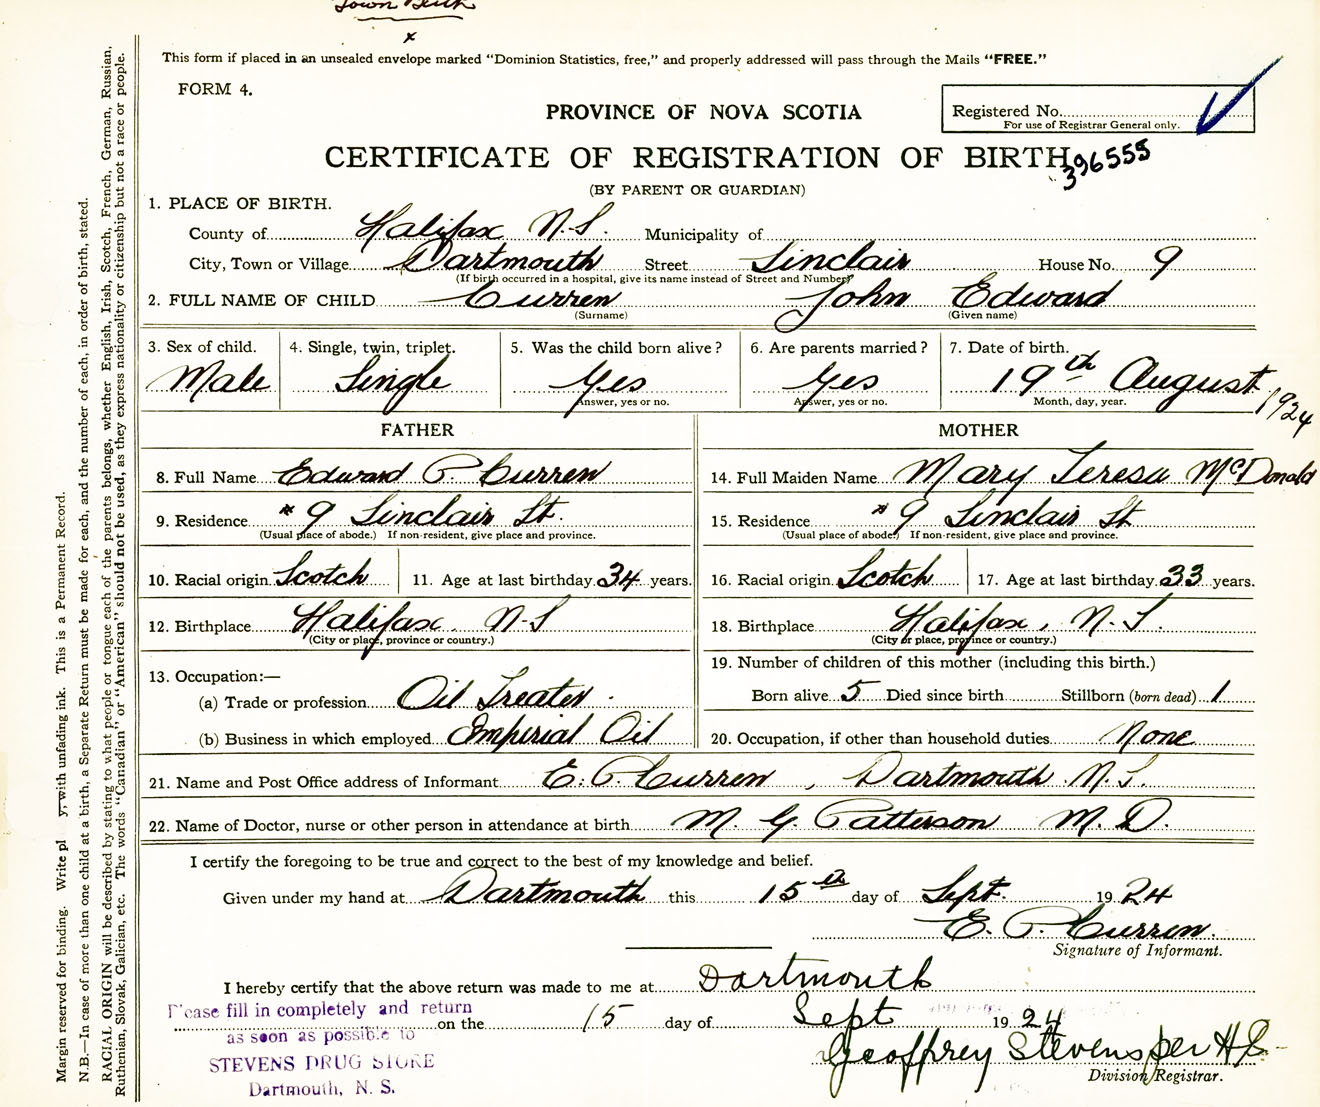 Town Birth
x
This form if placed in an unsealed envelope marked "Dominion Statistics, free," and properly addressed will pass through the Mails "FREE."
FORM 4.
PROVINCE OF NOVA SCOTIA
Registered No.
For use of Registrar General only.
CERTIFICATE OF REGISTRATION OF BIRTH
396555
(BY PARENT OR GUARDIAN)
1. PLACE OF BIRTH.
County of Halifax N.S. Municipality of
City, Town or Village Dartmouth Street Sinclair House No. 9
(If birth occurred in a hospital, give its name instead of Street and Number)
2. FULL NAME OF CHILD Curren John Edward
(Surname) (Given name)
3. Sex of child. 4. Single, twin, triplet. 5. Was the child born alive? 6. Are parents married? 7. Date of birth.
Male Single Yes Yes 19th August 1924
Answer, yes or no. Answer, yes or no. Month, day, year.
FATHER MOTHER
8. Full Name Edward P. Curren 14. Full Maiden Name Mary Teresa McDonald
9. Residence # 9 Sinclair St. 15. Residence # 9 Sinclair St
(Usual place of abode.) If non-resident, give place and province. (Usual place of abode.) If non-resident, give place and province.
10. Racial origin Scotch 11. Age at last birthday 34 years. 16. Racial origin Scotch 17. Age at last birthday 33 years.
12. Birthplace Halifax, N-S 18. Birthplace Halifax, N.S.
(City or place, province or country.) (City or place, province or country.)
13. Occupation:— 19. Number of children of this mother (including this birth.)
(a) Trade or profession Oil Treater Born alive 5 Died since birth Stillborn (born dead) 1
(b) Business in which employed Imperial Oil 20. Occupation, if other than household duties None
21. Name and Post Office address of Informant E. P. Curren, Dartmouth N.S.
22. Name of Doctor, nurse or other person in attendance at birth M. G. Patterson M.D.
I certify the foregoing to be true and correct to the best of my knowledge and belief.
Given under my hand at Dartmouth this 15th day of Sept. 1924
E. P. Curren.
Signature of Informant.
I hereby certify that the above return was made to me at Dartmouth
on the 15 day of Sept 1924
Geoffrey Stevens per H.S.
Division Registrar.
Please fill in completely and return
as soon as possible to
STEVENS DRUG STORE
Dartmouth, N. S.
Margin reserved for binding. Write pl y, with unfading ink. This is a Permanent Record.
N.B.—In case of more than one child at a birth, a Separate Return must be made for each, and the number of each, in order of birth, stated.
RACIAL ORIGIN will be described by stating to what people or tongue each of the parents belongs, whether English, Irish, Scotch, French, German, Russian,
Ruthenian, Slovak, Galician, etc. The words "Canadian" or "American" should not be used, as they express nationality or citizenship but not a race or people.